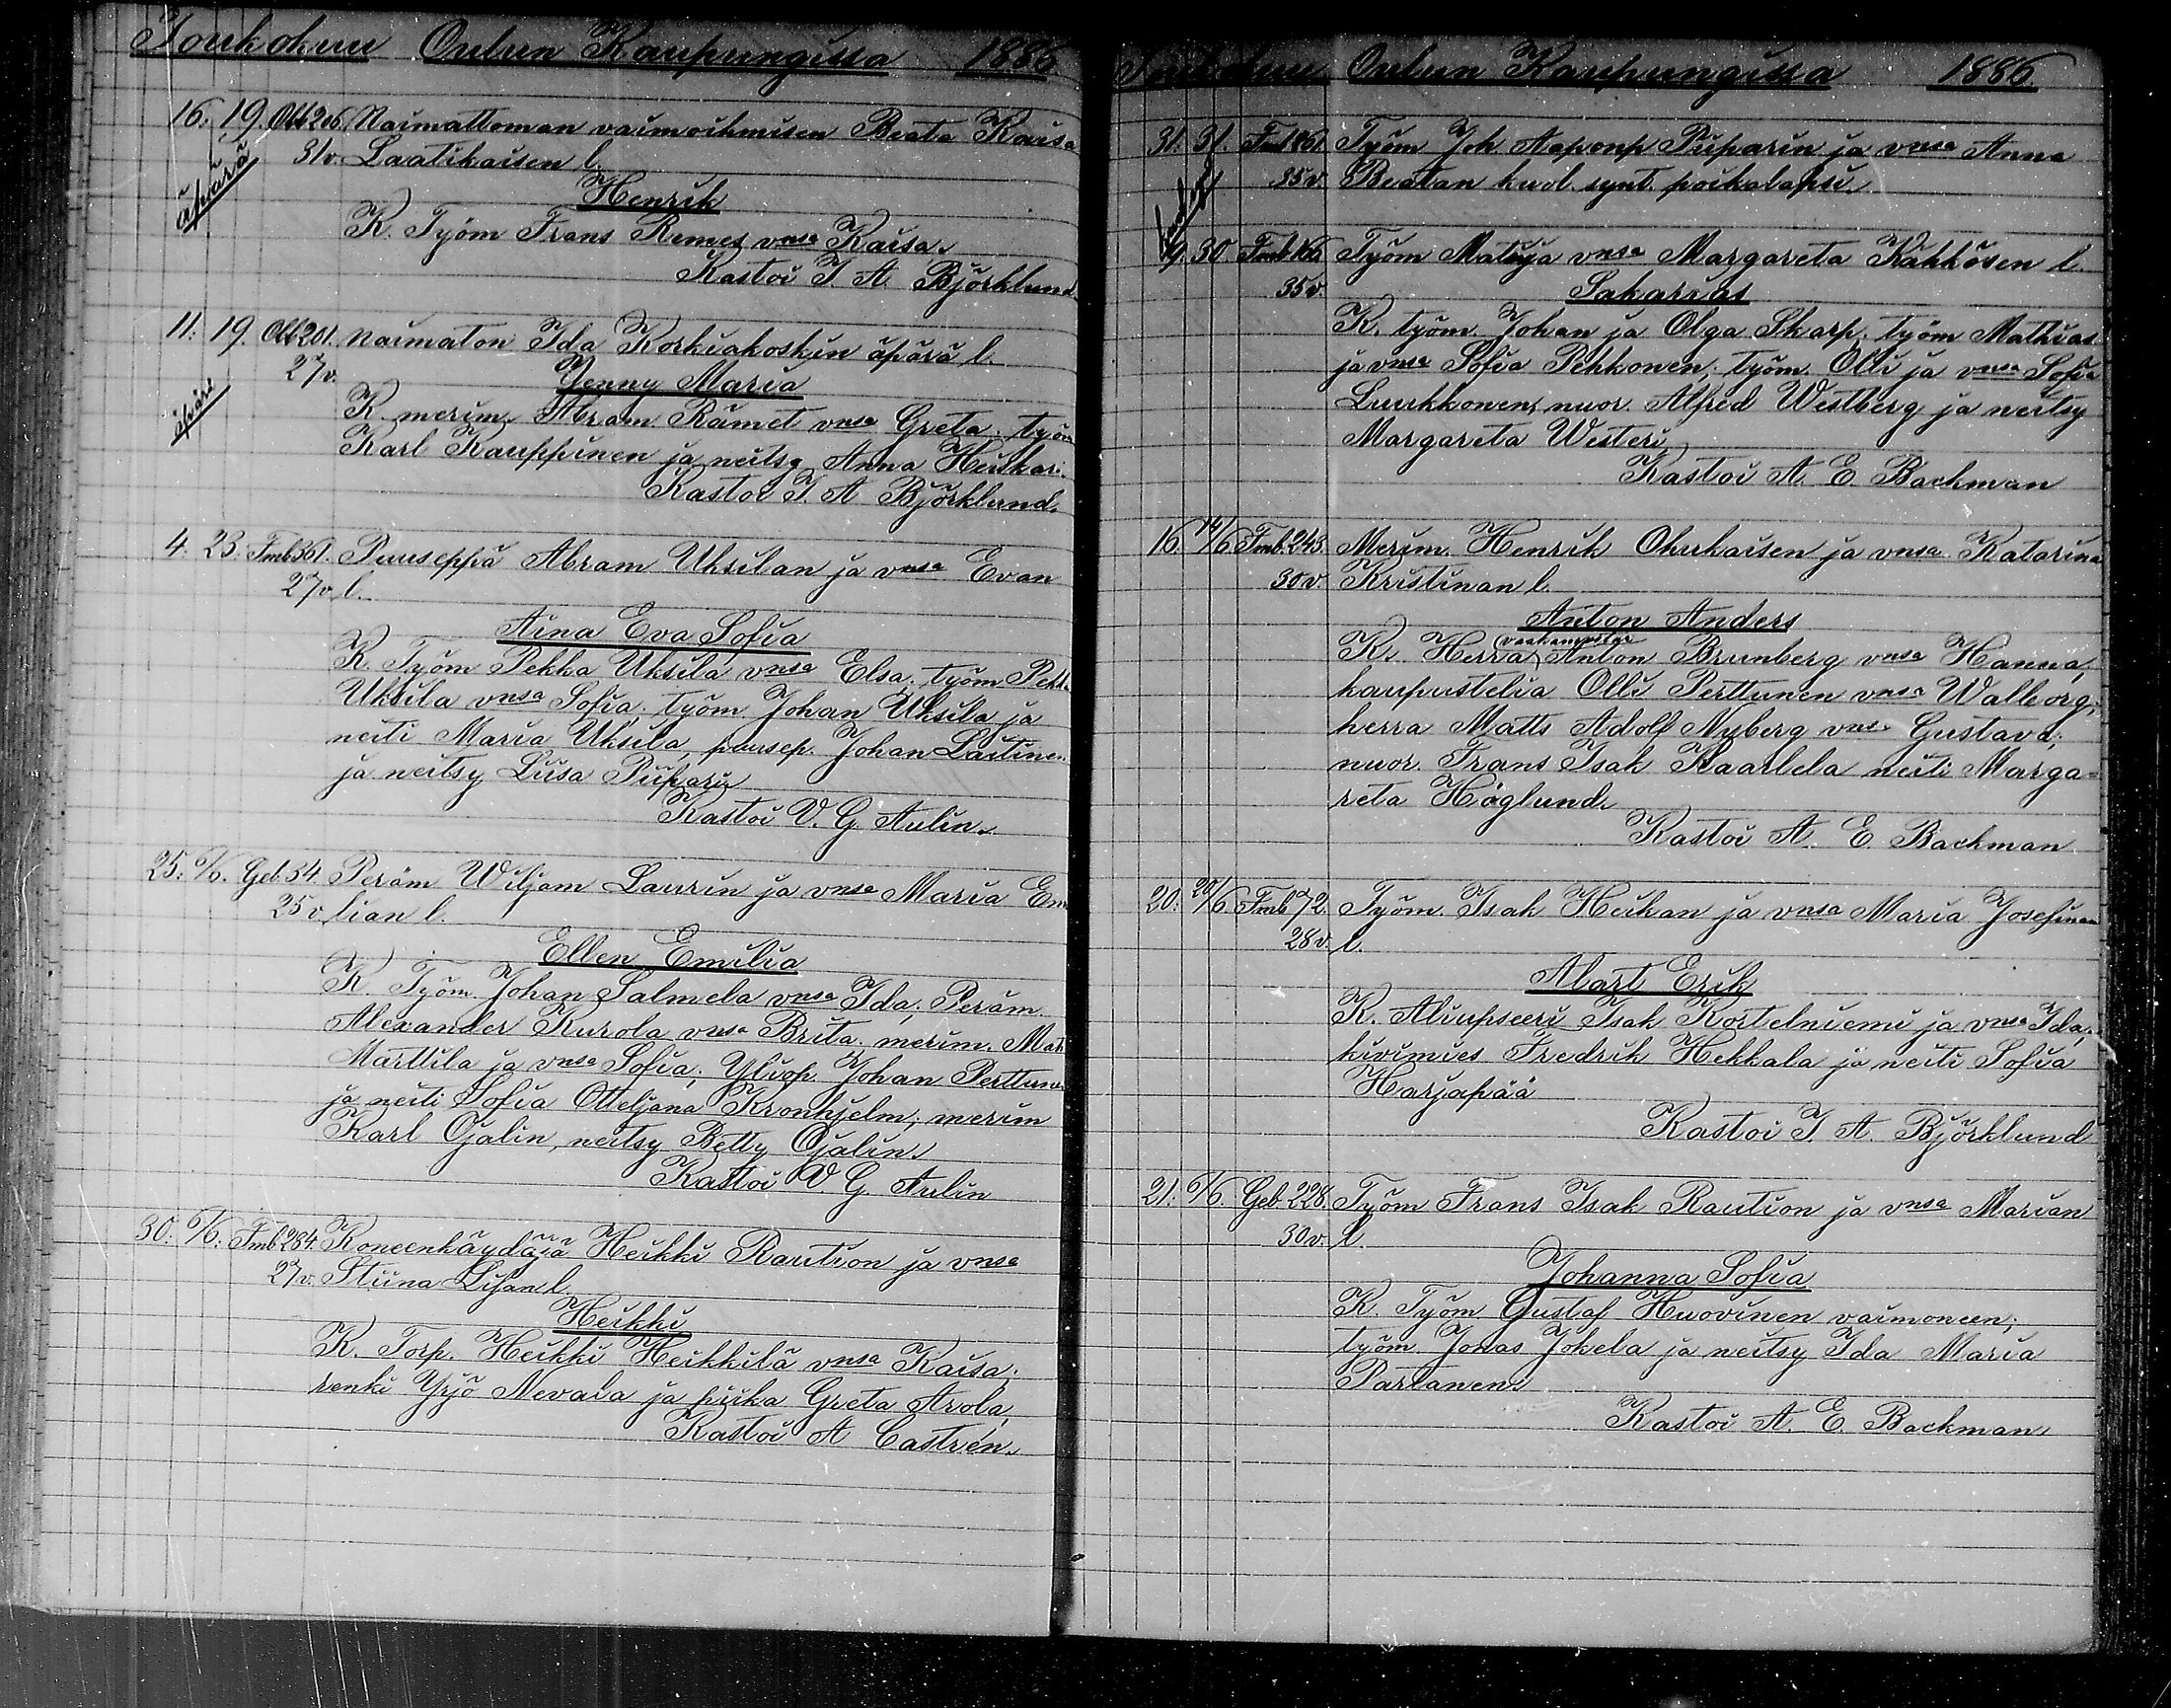 Toukokuu Oulun Kaupungissa 1886
16. 19. Obb 206. Naimattoman vaimoihmisen Beata Kaisa
äpärä 31 v. Laatikaisen l.
Henrik
K. Työm Frans Remes vnsa Kaisa.
Kastoi J. A. Björklund
11. 19. Obb 201. Naimaton Ida Korkiakoskin äpärä l.
27 v.
Jenny Maria
äpärä
K. merim. Abram Rämet vnsa Greta. työm
Karl Kauppinen ja neitsy Anna Heikkari.
Kastoi J. A Björklund.
4. 23. Fmb 361. Puuseppä Abram Uksilan ja vnsa Evan
27 v. l.
Aina Eva Sofia
K. Työm Pekka Uksila vnsa Elsa. työm. Pekk.
Uksila vnsa Sofia. työm Johan Uksila ja
neiti Maria Uksila, puusep. Johan Laitinen
ja neitsy Liisa Piipari
Kastoi V. G. Aulin.
25. 6/6. Geb. 34. Peräm Wiljam Laurin ja vnsa Maria Emi
25 v. lian l.
Ellen Emilia
K Työm. Johan Salmela vnsa Ida; Peräm.
Alexander Kurola vnsa Brita. merim. Matt
Marttila ja vnsa Sofia; Yliop. Johan Perttunen
ja neiti Sofia Otteljana Kronhjelm; merim
Karl Ojalin, neitsy Betty Ojalin.
Kastoi V. G. Aulin
30. 6/6. Fmb 284. Koneenkäydäjä Heikki Raution ja vnsa
27 v. Stiina Lisan l.
Heikki
K. Torp. Heikki Heikkilä vnsa Kaisa;
renki Yrjö Nevala ja piika Greta Arola,
Kastoi A Castrén.
Toukokuu Oulun Kaupungissa 1886
31. 31. Fmb 261. Työm Joh Aaponp Piiparin ja vnsa Anna
35 v. Beatan kuol. synt. poikalapsi.
9. 30 Fmb 166 Työm Matti ja vnsa Margareta Kakkösen l.
35 v.
Sakarias
K. työm. Johan ja Olga Skarp. työm Mathias
ja vnsa Sofia Pehkonen; työm. Olli ja vnsa Sofia
Luukkonen, nuor. Alfred Westberg ja neitsy
Margareta Westeri
Kastoi A. E. Backman
16. 14/6 Fmb. 243. Merim. Henrik Ohukaisen ja vnsa Katarina
30 v. Kristinan l.
Anton Anders
K. Herra Anton Brunberg vnsa Hanna,
kaupustelia Olli Perttunen vnsa Walborg;
herra Matts Adolf Nyberg vnsa Gustava;
nuor. Frans Isak Kaarlela neiti Marga=
reta Höglund.
Kastoi A. E. Backman
20. 20/6 Fmb 72. Työm. Isak Heikan ja vnsa Maria Josefinan
28 v. l.
Abart Erik
K. Aliupseeri Isak Kortelniemi ja vnsa Ida,
kivimies Fredrik Hekkala ja neiti Sofia
Harjapää
Kastoi J. A. Björklund
21. 6/6. Geb. 228. Työm Frans Isak Raution ja vnsa Marian
30 v. l.
Johanna Sofia
K. Työm Gustaf Huovinen vaimoneen;
työm. Jonas Jokela ja neitsy Ida Maria
Partanen.
Kastoi A. E. Backman